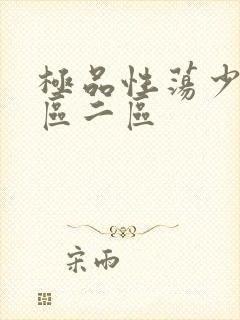 極品性蕩少
區二區
宋雨